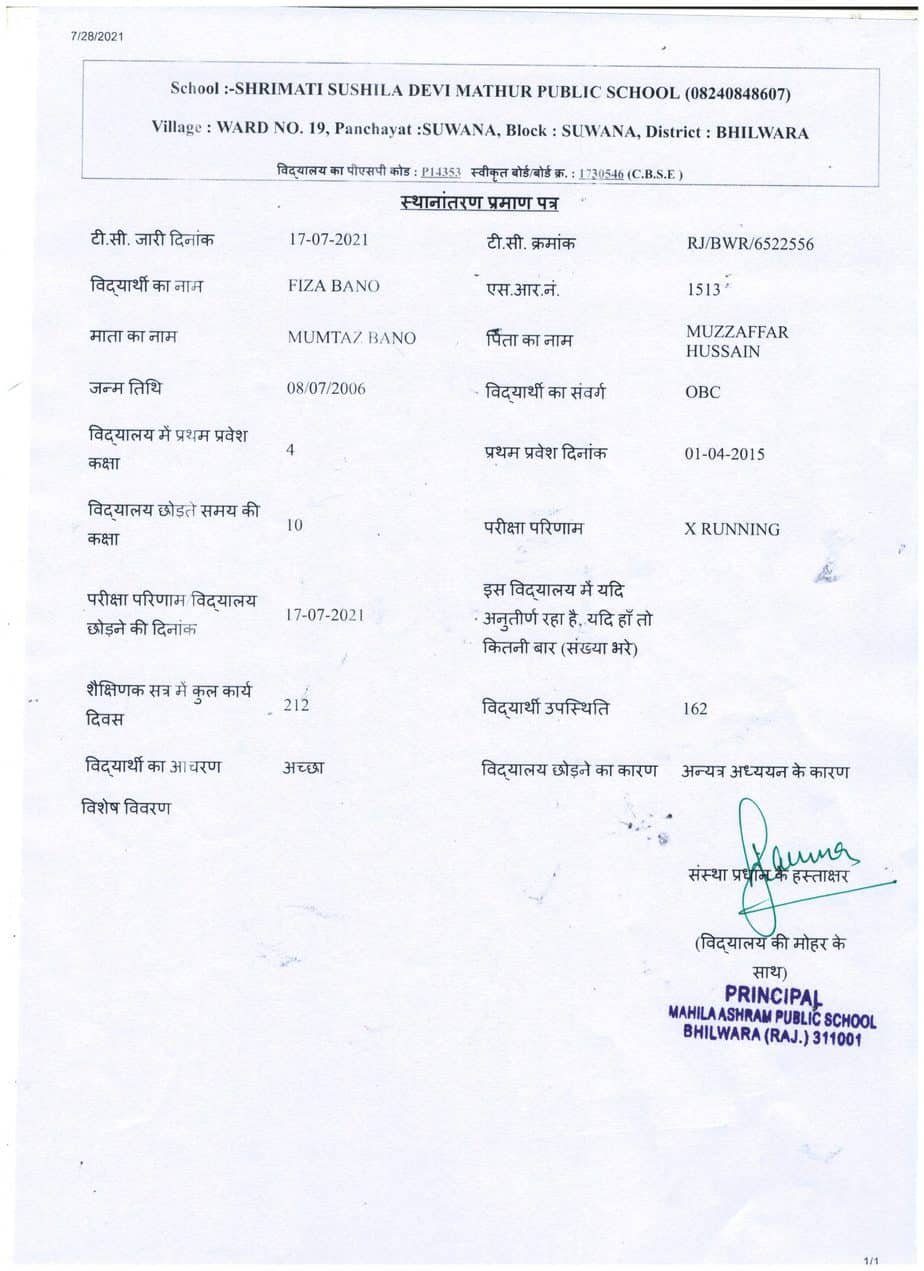 7/28/2021
School :-SHRIMATI SUSHILA DEVI MATHUR PUBLIC SCHOOL (08240848607)
Village : WARD NO. 19, Panchayat :SUWANA, Block : SUWANA, District : BHILWARA
विद्यालय का पीएसपी कोड : P14353 स्वीकृत बोर्ड/बोर्ड क्र. : 1730546 (C.B.S.E )
स्थानांतरण प्रमाण पत्र
टी.सी. जारी दिनांक 17-07-2021 टी.सी. क्रमांक RJ/BWR/6522556
विद्यार्थी का नाम FIZA BANO एस.आर.नं. 1513
माता का नाम MUMTAZ BANO पिता का नाम MUZZAFFAR
HUSSAIN
जन्म तिथि 08/07/2006 विद्यार्थी का संवर्ग OBC
विद्यालय में प्रथम प्रवेश
कक्षा 4 प्रथम प्रवेश दिनांक 01-04-2015
विद्यालय छोड़ते समय की
कक्षा 10 परीक्षा परिणाम X RUNNING
परीक्षा परिणाम/विद्यालय
छोड़ने की दिनांक 17-07-2021
इस विद्यालय में यदि
अनुतीर्ण रहा है, यदि हाँ तो
कितनी बार (संख्या भरे)
शैक्षिणक सत्र में कुल कार्य
दिवस 212 विद्यार्थी उपस्थिति 162
विद्यार्थी का आचरण अच्छा विद्यालय छोड़ने का कारण अन्यत्र अध्ययन के कारण
विशेष विवरण
संस्था प्रधान के हस्ताक्षर
(विद्यालय की मोहर के
साथ)
PRINCIPAL
MAHILA ASHRAM PUBLIC SCHOOL
BHILWARA (RAJ.) 311001
1/1